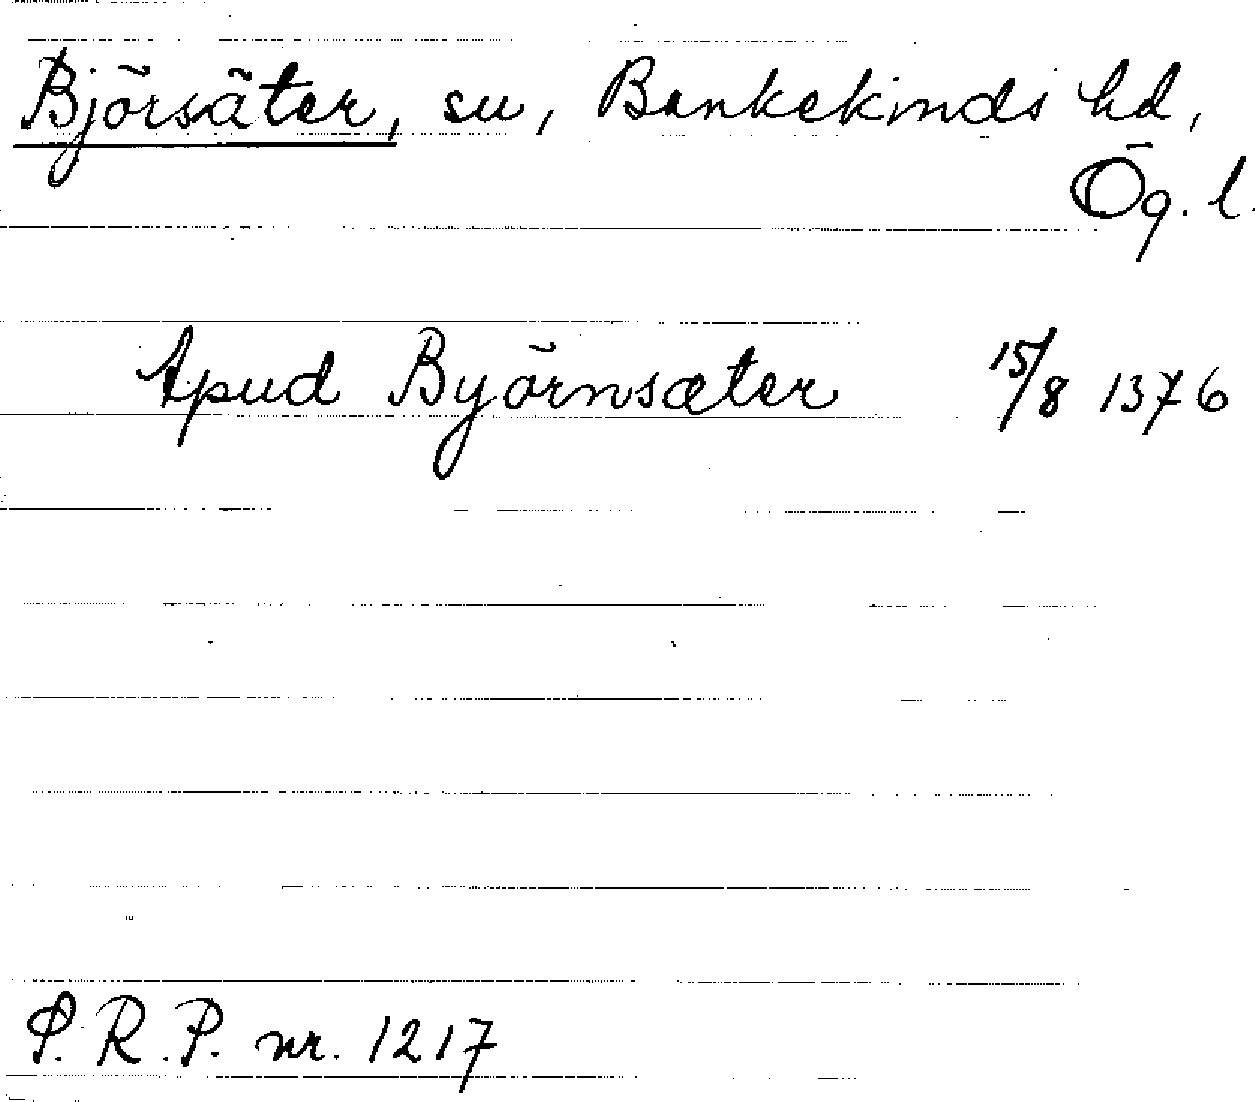 Björsäter, sn, Bankekinds hd,
Ög. l.
Apud Byörnsæter 15/8 1376
P. R. P. nr. 1217